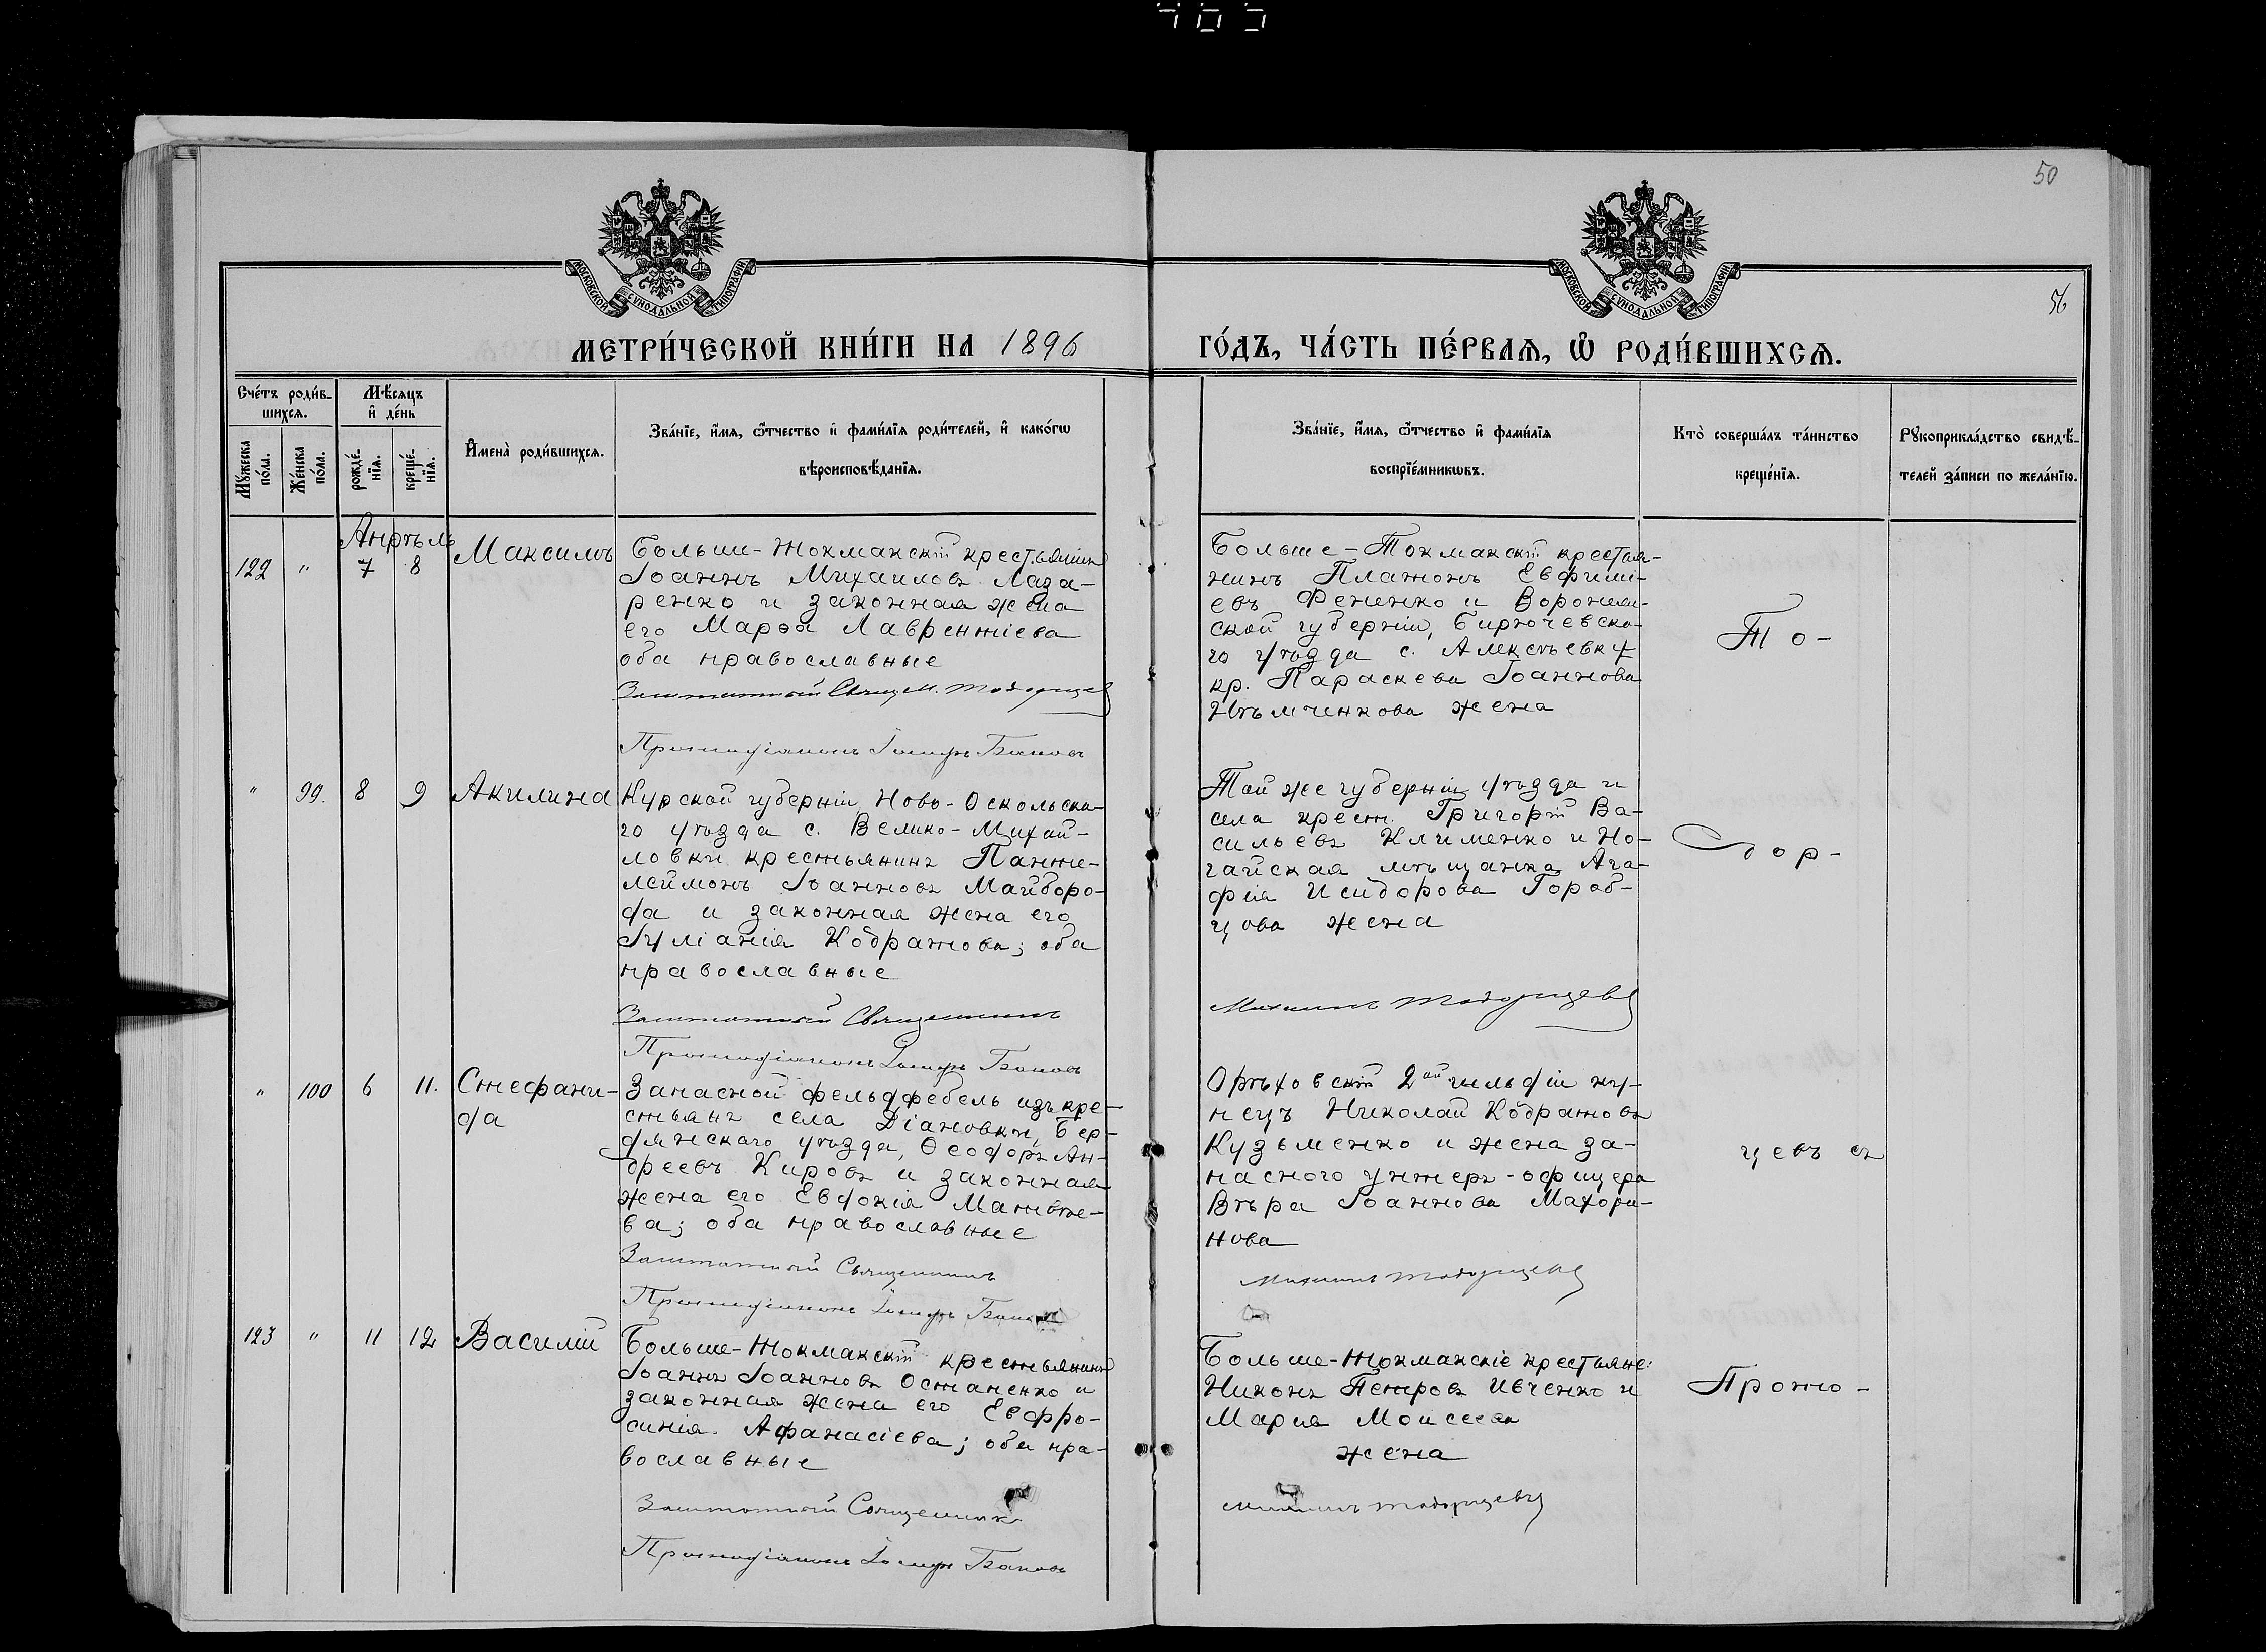 50
МОСКОВСКОЙ СУНОДАЛЬНОЙ ТИПОГРАФІИ
МОСКОВСКОЙ СУНОДАЛЬНОЙ ТИПОГРАФІИ
56
МЕТРИ́ЧЕСКОЙ КНИ́ГИ НА 1896
ГО́ДЪ, ЧА́СТЬ ПЕ́РВАѦ, Ѽ РОДИ́ВШИХСѦ.
Сче́тъ роди́в-
шихсѧ.
Мѣ́сѧцъ
и҆ де́нь
Мꙋ́жеска
по́ла.
Же́нска
по́ла.
рожде́-
нїѧ.
креще́-
нїѧ.
И҆мена̀ роди́вшихсѧ.
Зва́нїе, и҆́мѧ, ѻ҆́тчество и҆ фами́лїѧ роди́телей, и҆ како́гѡ
вѣроисповѣ́данїѧ.
Зва́нїе, и҆́мѧ, ѻ҆́тчество и҆ фами́лїѧ
воспрїе́мникѡвъ.
Кто̀ соверша́лъ та́инство
креще́нїѧ.
Рꙋкоприкла́дство свидѣ́-
телей за́писи по жела́нїю.
Апрѣль
122 " 7 8 Максимъ
Больше-Токмакскій крестьянинъ
Іоаннъ Михаиловъ Лаза-
ренко и законная жена
его Марѳа Лаврентіева
оба православные
Заштатный Свящ. М. Тодорцев
Протодіаконъ Іосифъ Баковъ
Больше-Токмакскій крестья-
нинъ Платонъ Евфими-
евъ Фененко и Воронеж-
ской губерніи, Бирючевска-
го уѣзда с. Алексѣевки
кр. Параскева Іоаннова
Нѣмченкова жена
То-
" 99. 8 9 Акилина
Курской губерніи, Ново-Оскольска-
го уѣзда с. Велико-Михай-
ловки крестьянинъ Панте-
леймонъ Іоанновъ Майборо-
да и законная жена его
Іуліанія Кодратова; оба
православные
Заштатный Священникъ
Протодіаконъ Іосифъ Баковъ
Той же губерніи, уѣзда и
села крест. Григорій Ва-
сильевъ Клименко и Но-
гайская мѣщанка Ага-
фія Исидорова Гороб-
цова жена
Михаилъ Тодорцевъ
дор-
" 100 6 11. Стефани-
да
Запасной фельдфебель изъ кре-
стьянъ села Діановки, Бер-
дянскаго уѣзда, Ѳеодоръ Ан-
дреевъ Кировъ и законная
жена его Евдокія Матвѣе-
ва; оба православные
Заштатный Священникъ
Протодіаконъ Іосифъ Баковъ
Орѣховскій 2ой гильдіи ку-
пецъ Николай Кодратовъ
Кузьменко и жена за-
паснаго унтеръ-офицера
Вѣра Іоаннова Махори-
нова
Михаилъ Тодорцевъ
цевъ съ
123 " 11 12 Василій
Больше-Токмакскій крестьянинъ
Іоаннъ Іоанновъ Остапенко и
законная жена его Евфро-
синія Афанасіева; оба пра-
вославные
Заштатный Священникъ
Протодіаконъ Іосифъ Баковъ
Больше-Токмакскіе крестьяне:
Никонъ Петровъ Ивченко и
Марія Моисеева
жена
Михаилъ Тодорцевъ
Прото-